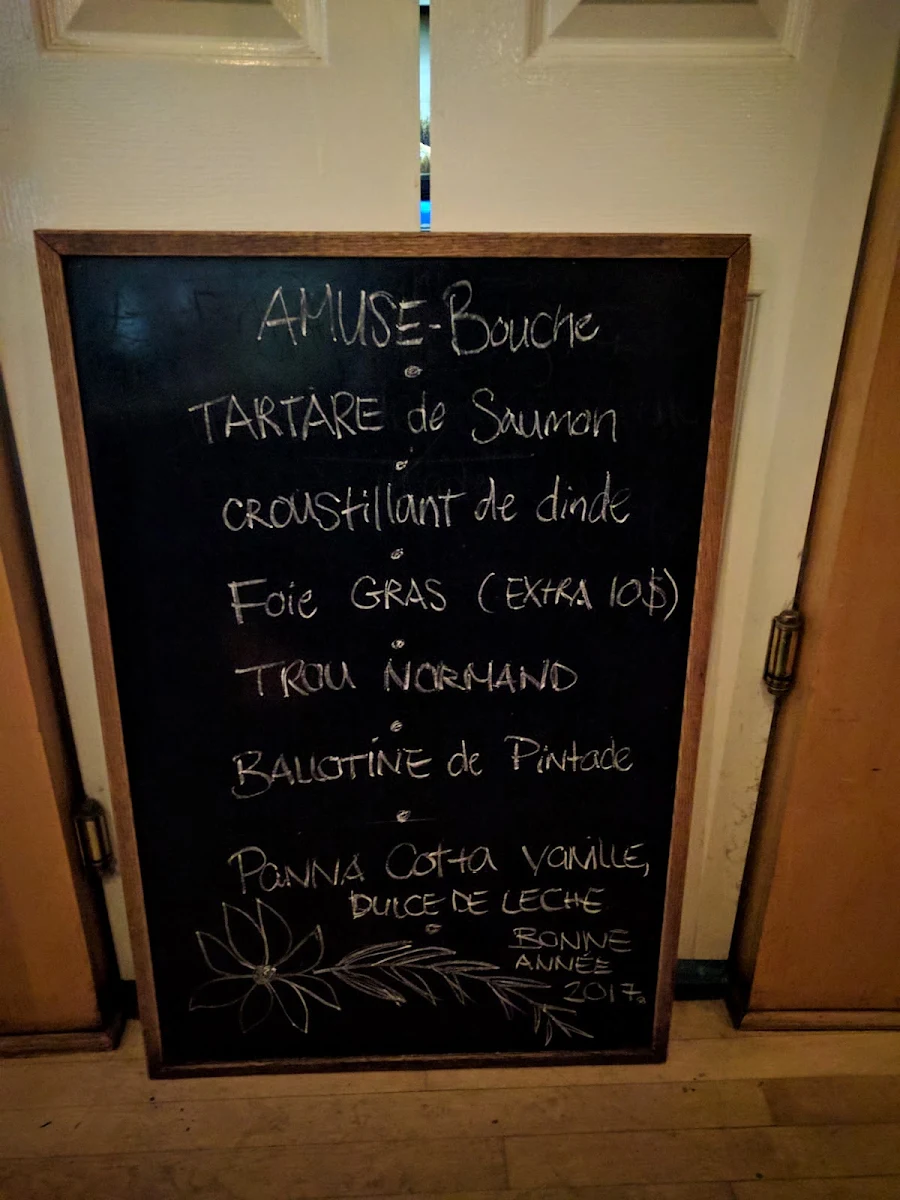 AMUSE-Bouche
TARTARE de Saumon
CROUStillant de dinde
Foie GRAS (EXTRA 10$)
TROU NORMAND
BALLOTINE de Pintade
PANNA Cotta VANILLE,
DULCE DE LECHE
BONNE
ANNÉE
2017.